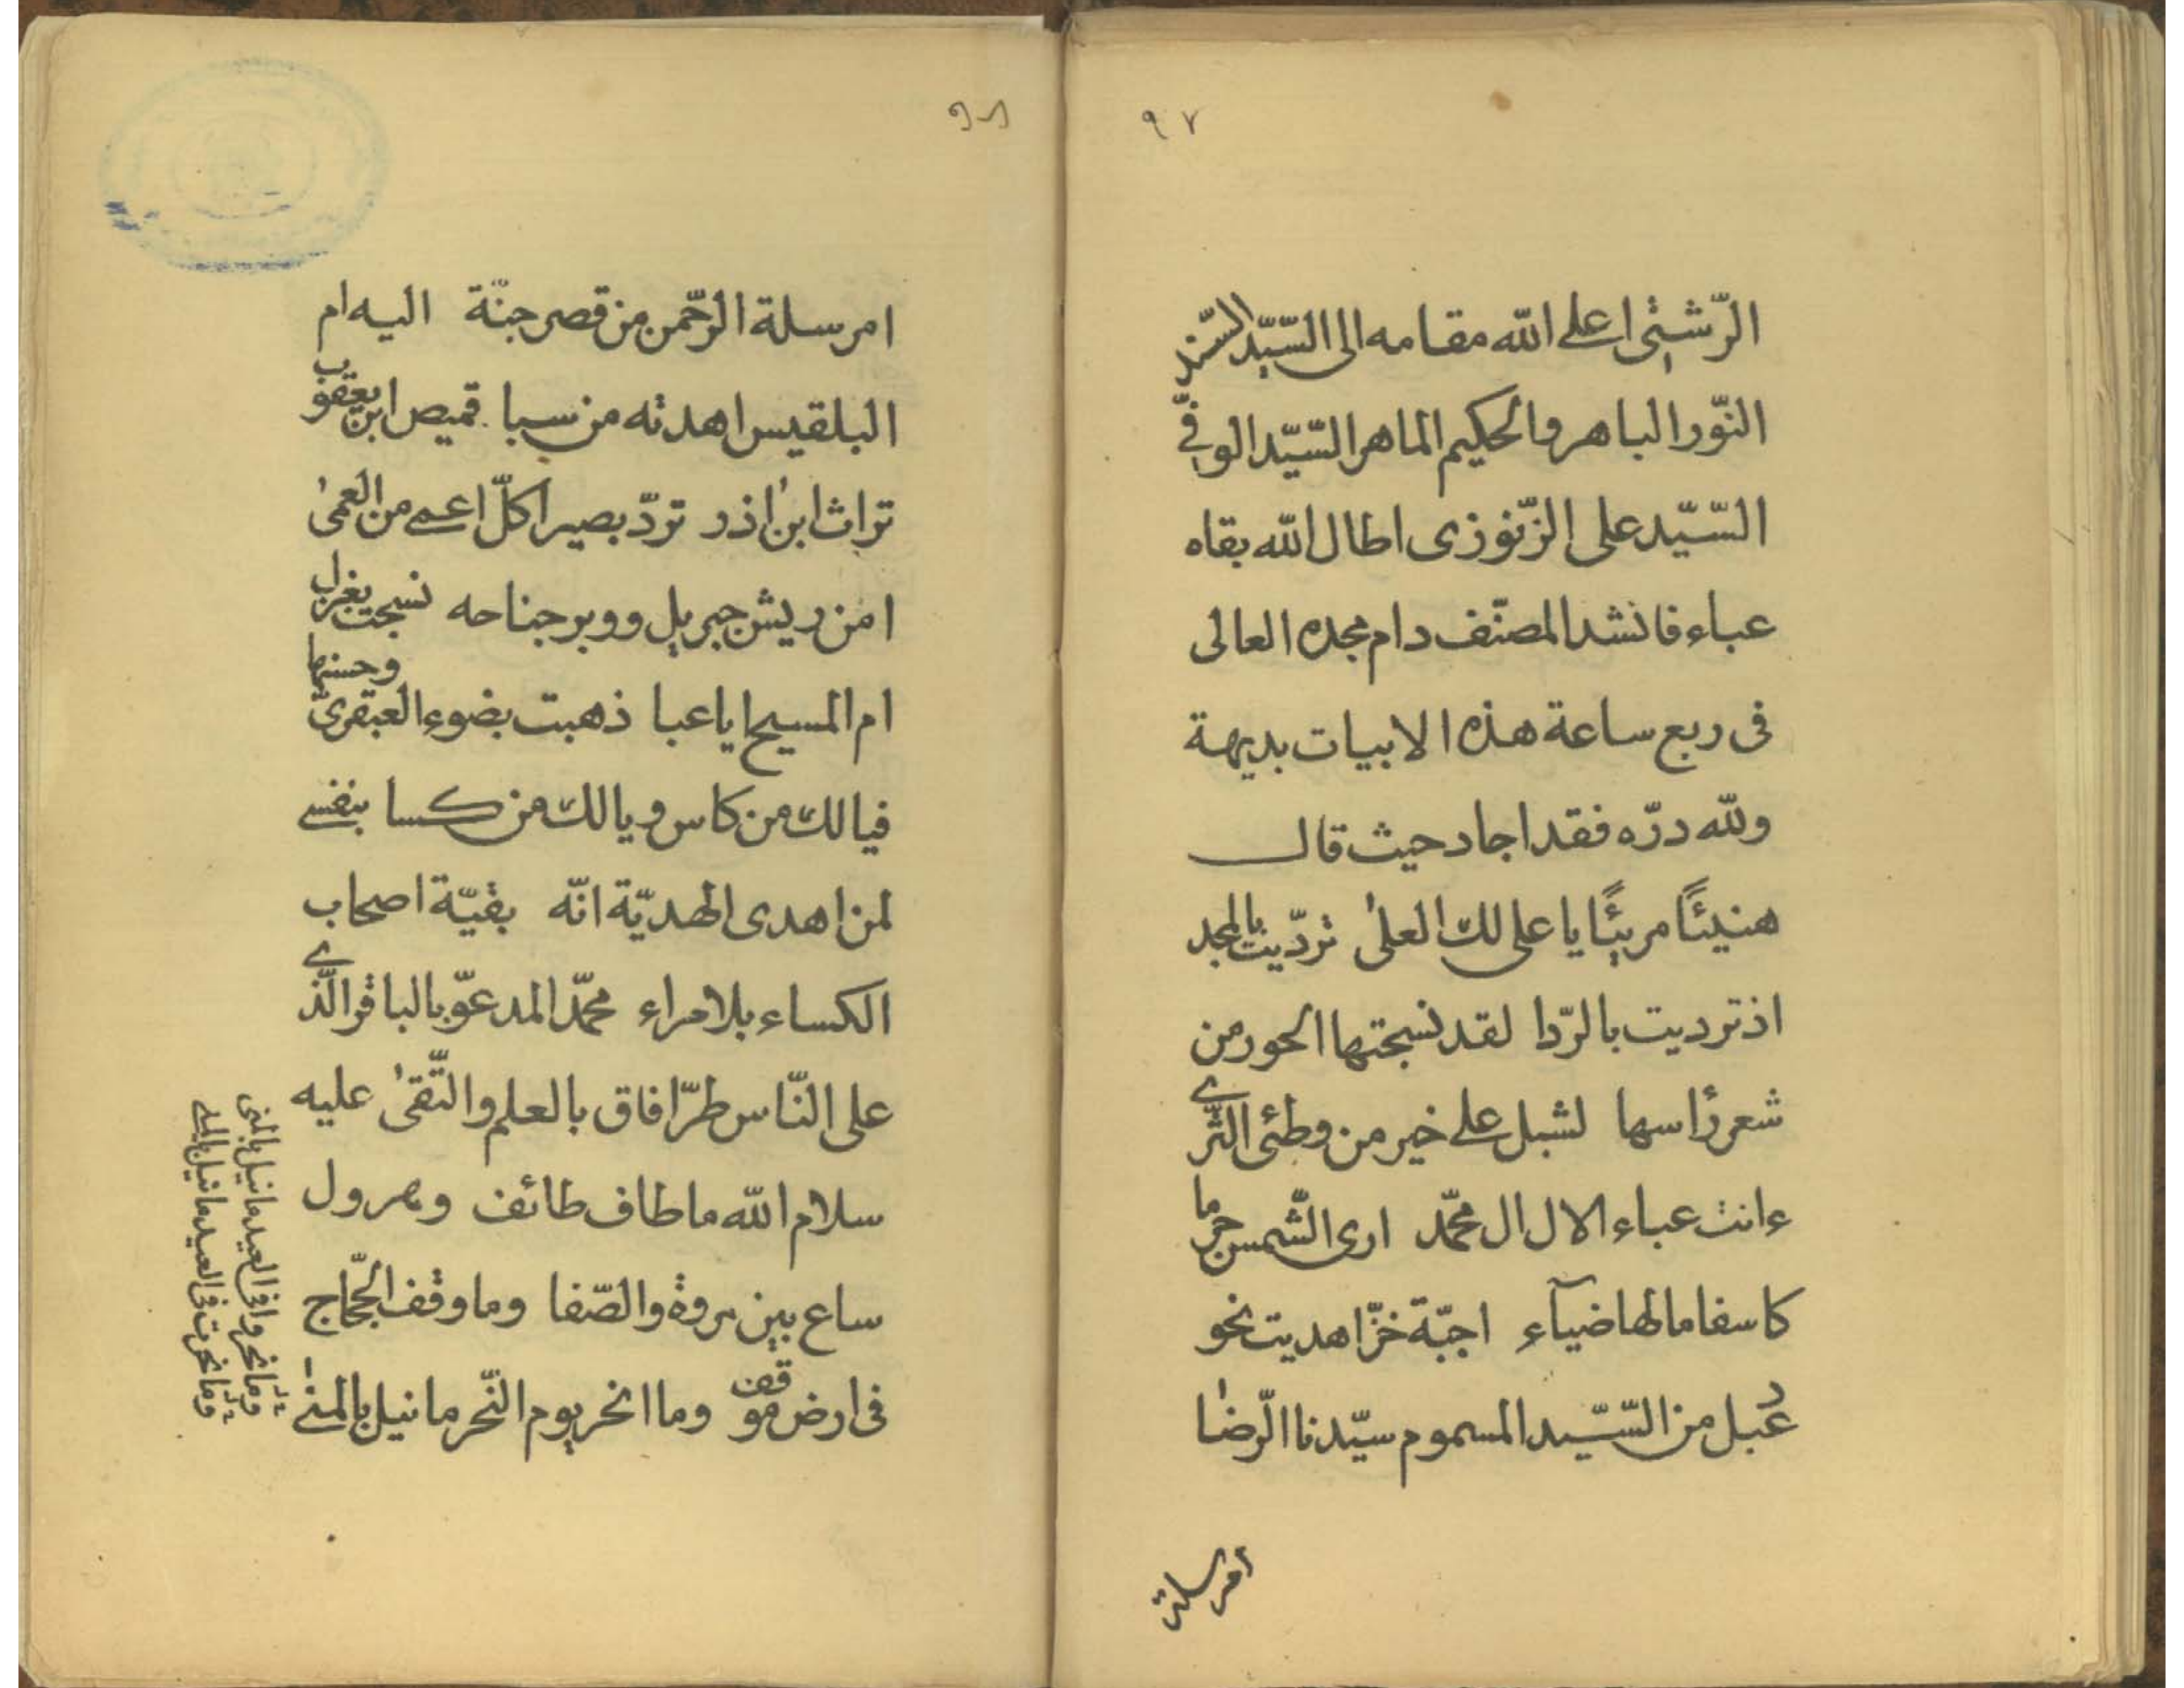 ٩٧
الرّشتى اعلى الله مقامه الى السّيّد السّند
النّور الباهر والحكيم الماهر السّيّد الوفىّ
السّيّد على الزّنوزى اطال الله بقاه
عباء فانشد المصنّف دام مجده العالى
فى ربع ساعة هذه الابيات بديهة
ولله درّه فقد اجاد حيث قال
هنيئًا مريئًا يا على لك العلىٰ تردّيت بالمجد
اذ ترديت بالرّدا لقد نسجتها الحور من
شعر رٔاسها لشبل على خير من وطئى الثّرى
ءانت عباء الال ال محمّد ارى الشّمس جرما
كاسفا مالها ضيآء اجبّة خزّ اهديت نحو
دعبل من السّيّد المسموم سيّدنا الرّضا
امرسلة
٩٨
امرسلة الرّحمن من قصر جنّة اليه ام
البلقيس اهدته من سبا قميص ابن يعقوب
تراث ابن اذر تردّ بصيرا كلّ اعمى من العمىٰ
امن ريش جبريل ووبر جناحه نسجت بغزل
ام المسيح ايا عبا ذهبت بضوء العبقرىّ وحسنها
فيا لك من كاس ويا لك من كسا بنفسى
لمن اهدى الهديّة انّه بقيّة اصحاب
الكساء بلا مراء محمّد المدعوّ بالباقر الّذى
على النّاس طرّا فاق بالعلم والتّقىٰ عليه
سلام الله ما طاف طائف وهرول
ساع بين مروة والصّفا وما وقف الحجّاج
فى ارض موقف وما انحر يوم النّحر ما نيل بالمنى
وما نحروا فى العيد ما نيل بالمنى
وما نحرت فى العيد ما نيل بالمنى